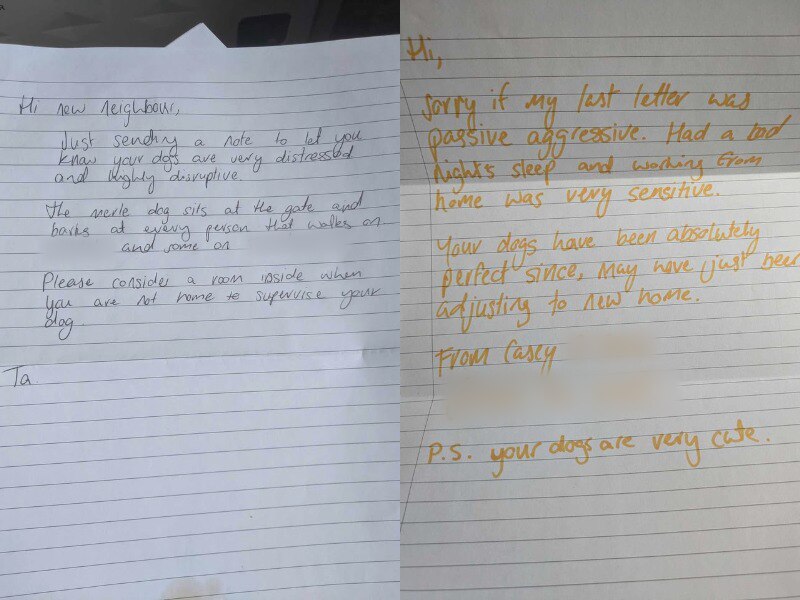 Hi new neighbour,
Just sending a note to let you
know your dogs are very distressed
and highly disruptive.
The merle dog sits at the gate and
barks at every person that walks on
and some on
Please consider a room inside when
you are not home to supervise your
dog.
Ta
Hi,
Sorry if my last letter was
passive aggressive. Had a bad
nights sleep and working from
home was very sensitive.
Your dogs have been absolutely
perfect since, may have just been
adjusting to new home.
From Casey
P.S. your dogs are very cute.